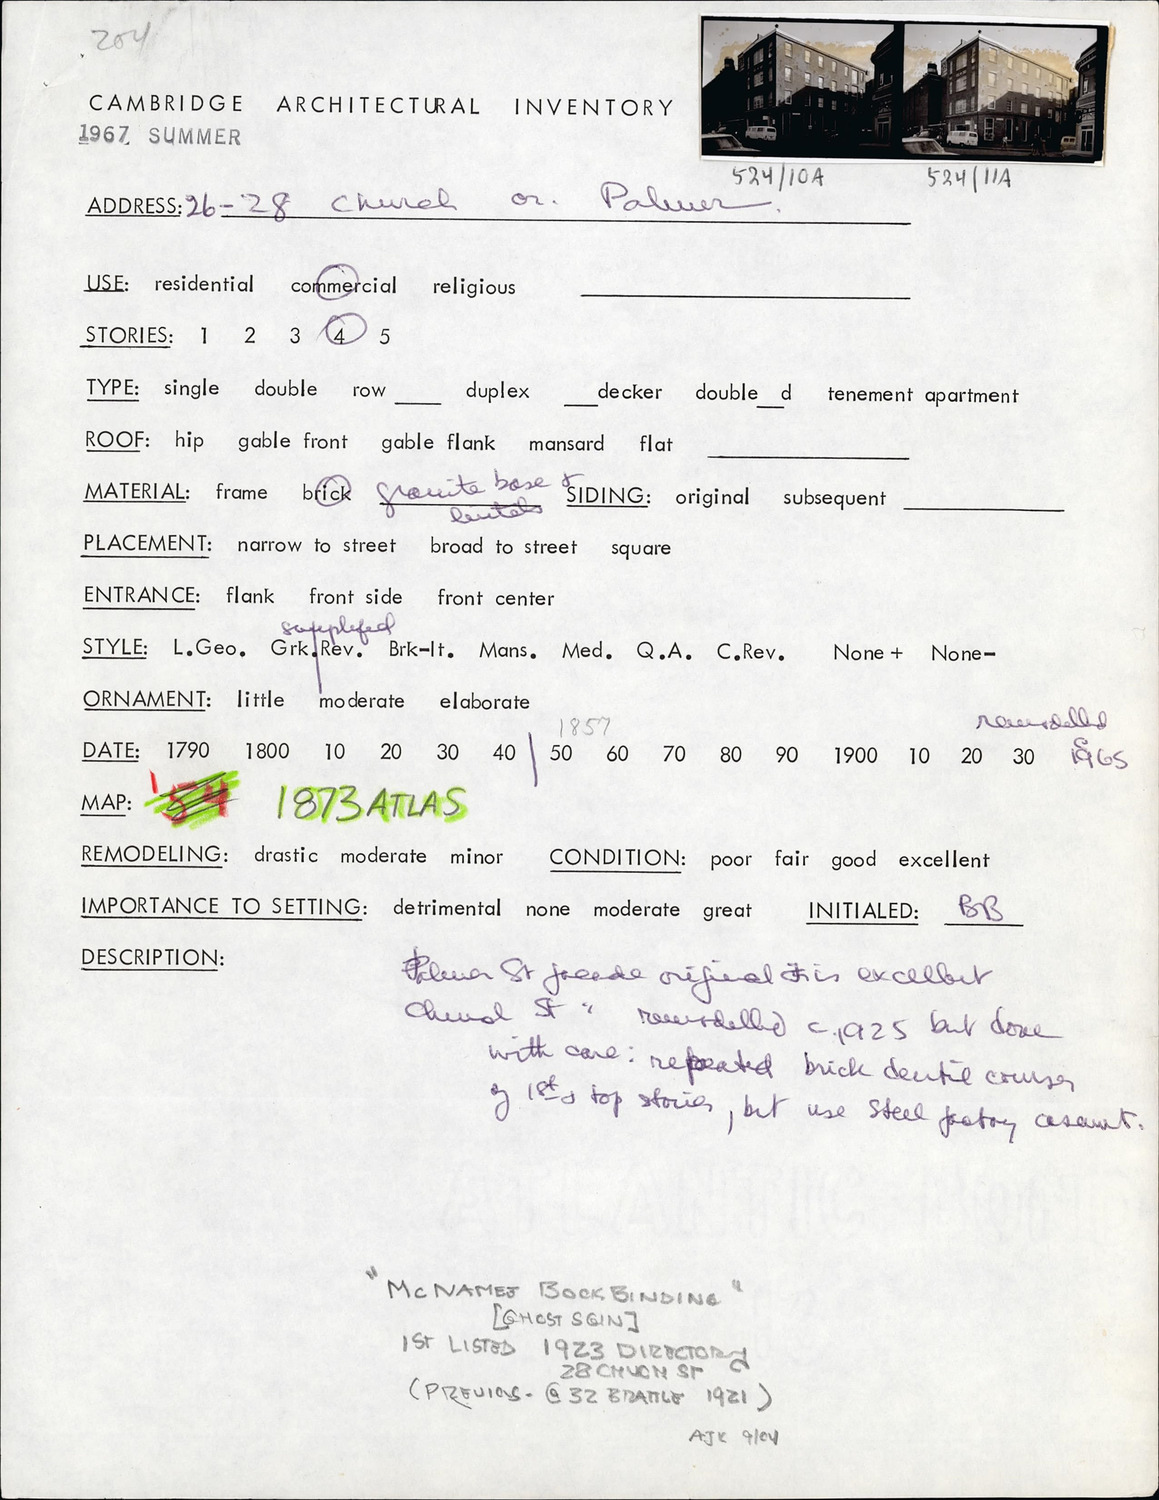 204
524/10A 524/11A
CAMBRIDGE ARCHITECTURAL INVENTORY
1967 SUMMER
ADDRESS: 26-28 Church or. Palmer.
USE: residential commercial religious
STORIES: 1 2 3 4 5
TYPE: single double row ___ duplex ___decker double__d tenement apartment
ROOF: hip gable front gable flank mansard flat
MATERIAL: frame brick granite base & SIDING: original subsequent
lintels
PLACEMENT: narrow to street broad to street square
ENTRANCE: flank front side front center
simplified
STYLE: L.Geo. Grk.Rev. Brk-It. Mans. Med. Q.A. C.Rev. None+ None-
ORNAMENT: little moderate elaborate
1857 remodelled
DATE: 1790 1800 10 20 30 40 50 60 70 80 90 1900 10 20 30 1965
MAP: '54 1873 ATLAS
REMODELING: drastic moderate minor CONDITION: poor fair good excellent
IMPORTANCE TO SETTING: detrimental none moderate great INITIALED: BB
DESCRIPTION:
Palmer St facade original & is excellent
Church St " remodelled c.1925 but done
with care: repeated brick dentil courses
of 1st & top stories, but use steel factory casemt.
"McNAMEE BOOKBINDING"
[GHOST SGIN]
1ST LISTED 1923 DIRECTORY
28 CHURCH ST
(PREVIOS- @ 32 BRATTLE 1921)
AJK 9/04